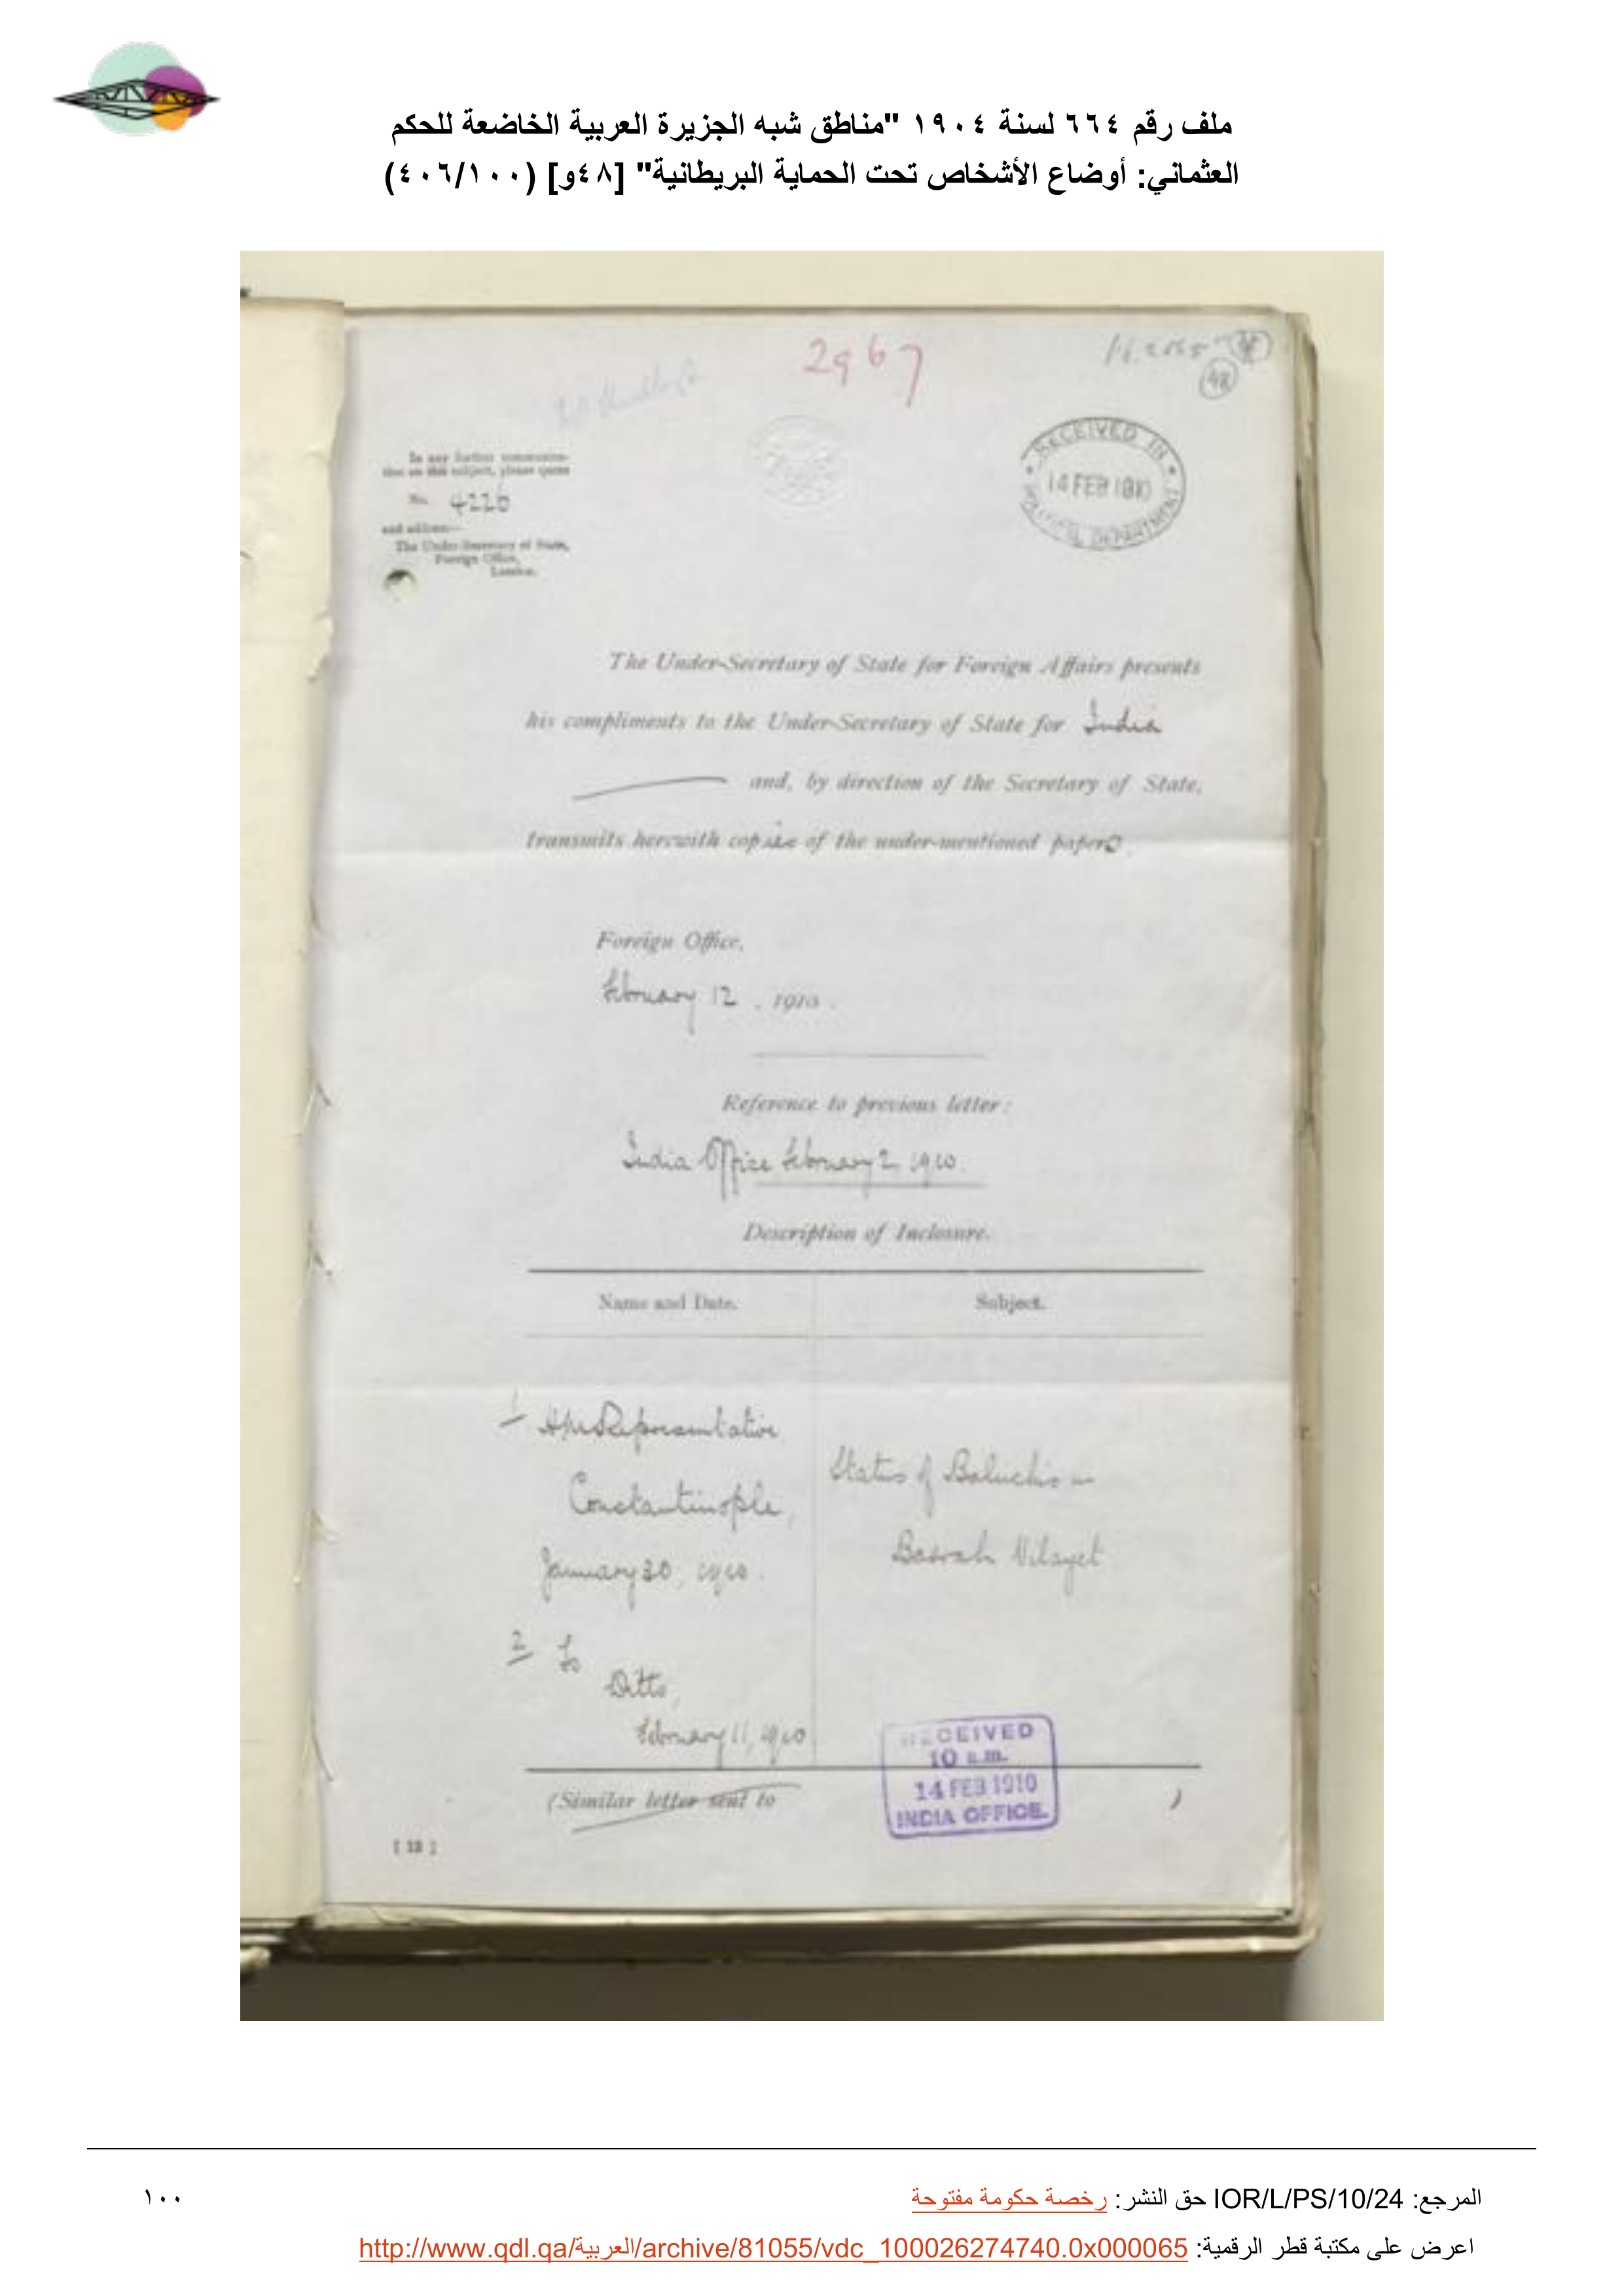 ملف رقم ٦٦٤ لسنة ١٩٠٤ "مناطق شبه الجزيرة العربية الخاضعة للحكم
العثماني: أوضاع الأشخاص تحت الحماية البريطانية" [٤٨و] (٤٠٦/١٠٠)
2967
48
In any further communica-
tion on this subject, please quote
No. 4226
and address—
The Under-Secretary of State,
Foreign Office,
London.
RECEIVED IN
14 FEB 1910
POLITICAL DEPARTMENT
The Under-Secretary of State for Foreign Affairs presents
his compliments to the Under-Secretary of State for India
and, by direction of the Secretary of State,
transmits herewith copies of the under-mentioned papers.
Foreign Office,
February 12, 1910.
Reference to previous letter:
India Office February 2, 1910.
Description of Inclosure.
Name and Date. Subject.
1 HM Representative
Constantinople,
January 30, 1910.
Status of Baluchis in
Basrah Vilayet
2 To
Ditto,
February 11, 1910
(Similar letter sent to )
RECEIVED
10 a.m.
14 FEB 1910
INDIA OFFICE.
المرجع: IOR/L/PS/10/24 حق النشر: رخصة حكومة مفتوحة
١٠٠
اعرض على مكتبة قطر الرقمية: http://www.qdl.qa/العربية/archive/81055/vdc_100026274740.0x000065